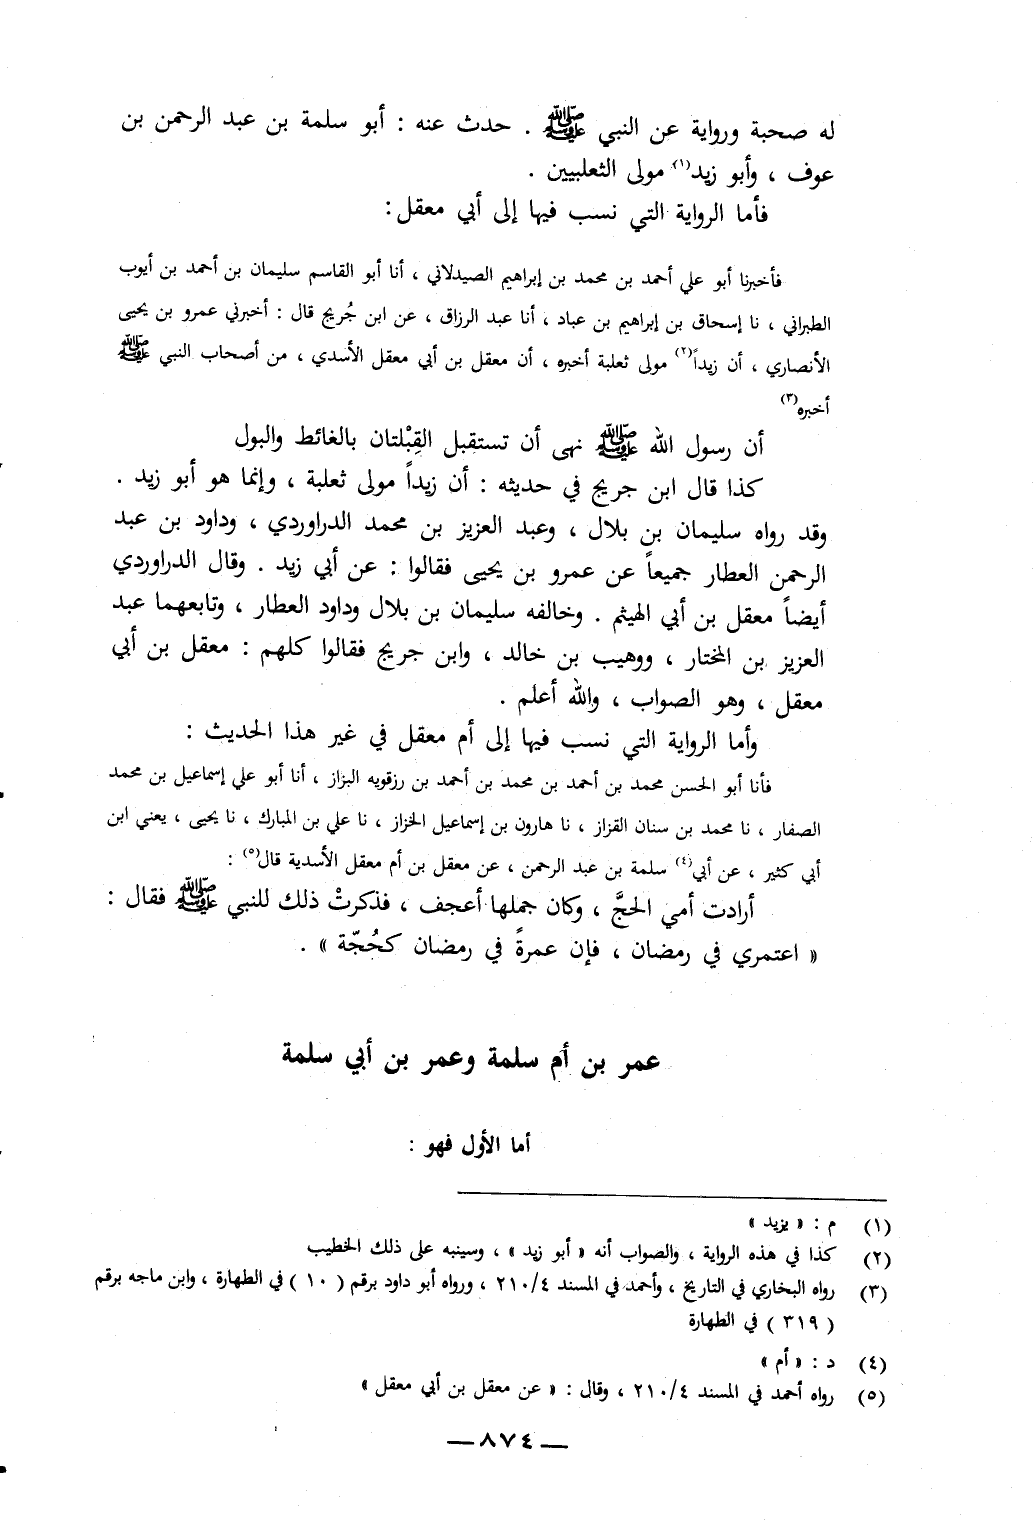 له صحبة ورواية عن النبي ﷺ . حدث عنه : أبو سلمة بن عبد الرحمن بن
عوف ، وأبو زيد(١) مولى الثعلبيين .
فأما الرواية التي نسب فيها إلى أبي معقل:
فأخبرنا أبو علي أحمد بن محمد بن إبراهيم الصيدلاني ، أنا أبو القاسم سليمان بن أحمد بن أيوب
الطبراني ، نا إسحاق بن إبراهيم بن عباد ، أنا عبد الرزاق ، عن ابن جُريج قال : أخبرني عمرو بن يحيى
الأنصاري ، أن زيداً(٢) مولى ثعلبة أخبره ، أن معقل بن أبي معقل الأسدي ، من أصحاب النبي ﷺ
أخبره(٣)
أن رسول الله ﷺ نهى أن تستقبل القِبْلتان بالغائط والبول
كذا قال ابن جريج في حديثه : أن زيداً مولى ثعلبة ، وإنما هو أبو زيد .
وقد رواه سليمان بن بلال ، وعبد العزيز بن محمد الدراوردي ، وداود بن عبد
الرحمن العطار جميعاً عن عمرو بن يحيى فقالوا : عن أبي زيد . وقال الدراوردي
أيضاً معقل بن أبي الهيثم . وخالفه سليمان بن بلال وداود العطار ، وتابعهما عبد
العزيز بن المختار ، ووهيب بن خالد ، وابن جريج فقالوا كلهم : معقل بن أبي
معقل ، وهو الصواب ، والله أعلم .
وأما الرواية التي نسب فيها إلى أم معقل في غير هذا الحديث :
فأنا أبو الحسن محمد بن أحمد بن محمد بن أحمد بن رزقويه البزاز ، أنا أبو علي إسماعيل بن محمد
الصفار ، نا محمد بن سنان القزاز ، نا هارون بن إسماعيل الخزاز ، نا علي بن المبارك ، نا يحيى ، يعني ابن
أبي كثير ، عن أبي(٤) سلمة بن عبد الرحمن ، عن معقل بن أم معقل الأسدية قال(٥) :
أرادت أمي الحجَّ ، وكان جملها أعجف ، فذكرتْ ذلك للنبي ﷺ فقال :
« اعتمري في رمضان ، فإن عمرةً في رمضان كحُجّة » .
عمر بن أم سلمة وعمر بن أبي سلمة
أما الأول فهو :
(١) م : « يزيد »
(٢) كذا في هذه الرواية ، والصواب أنه « أبو زيد » ، وسينبه على ذلك الخطيب
(٣) رواه البخاري في التاريخ ، وأحمد في المسند ٢١٠/٤ ، ورواه أبو داود برقم ( ١٠ ) في الطهارة ، وابن ماجه برقم
( ٣١٩ ) في الطهارة
(٤) د : « أم »
(٥) رواه أحمد في المسند ٢١٠/٤ ، وقال : « عن معقل بن أبي معقل »
— ٨٧٤ —